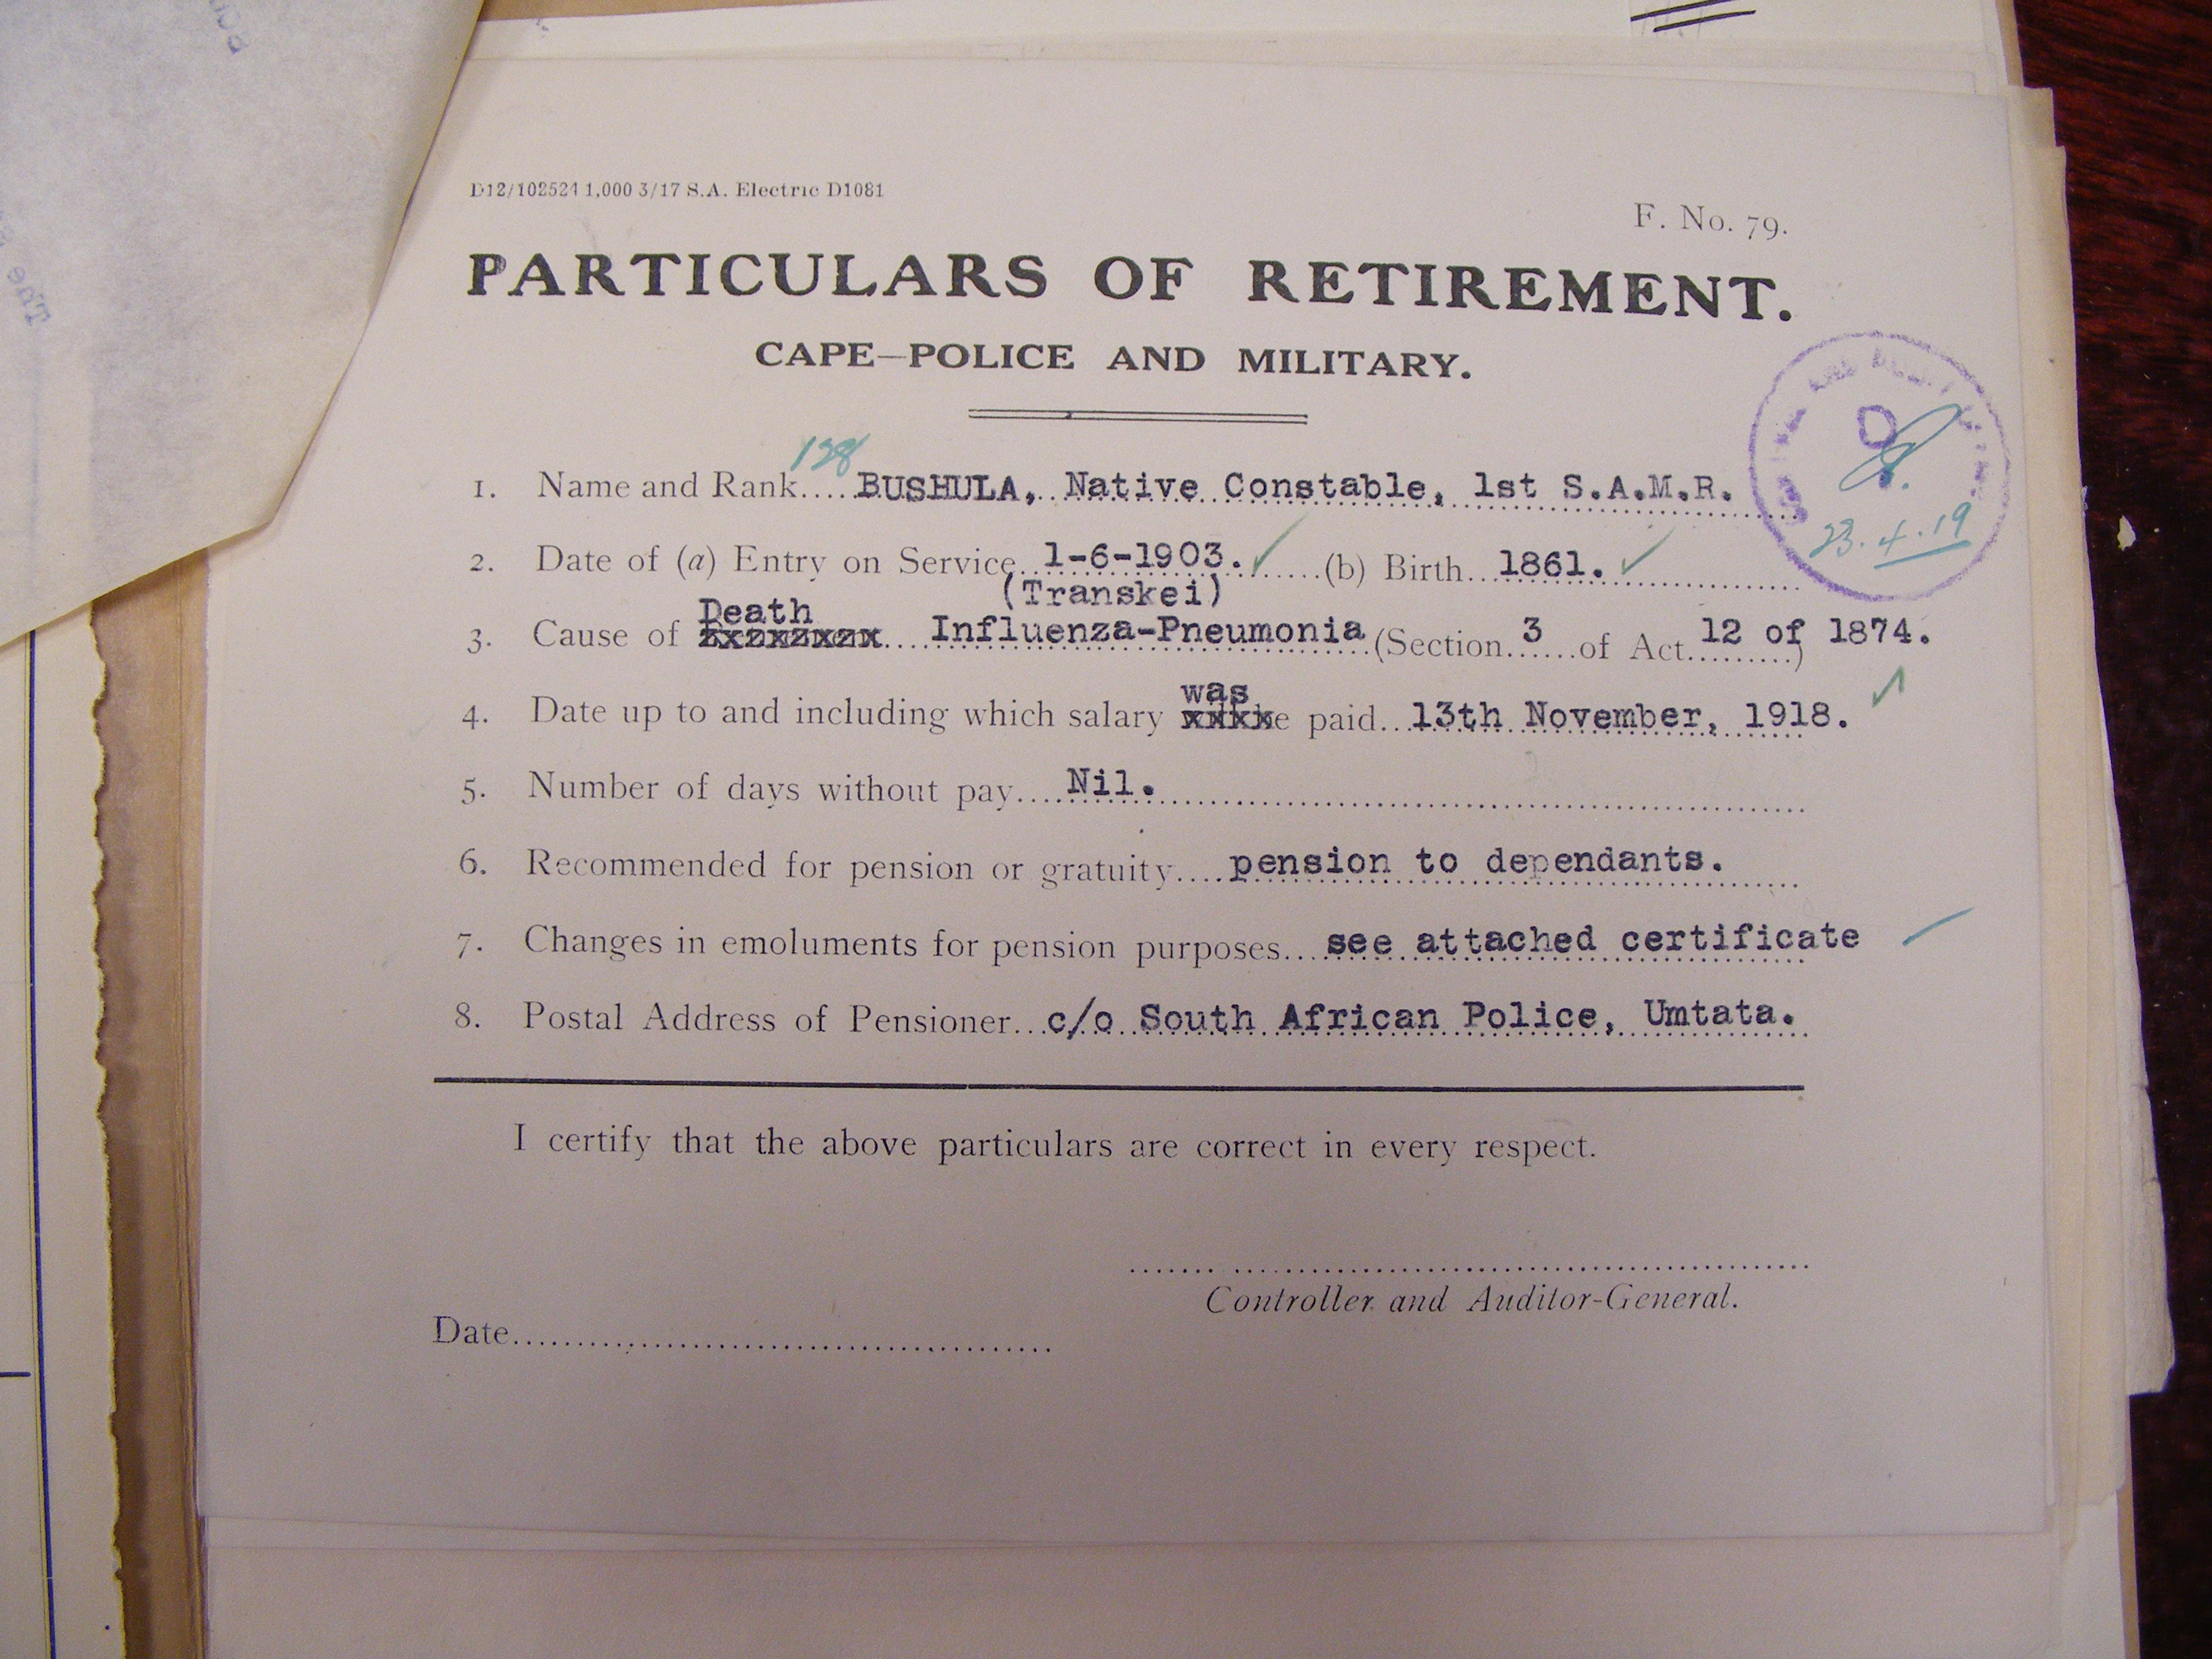 D12/102524 1,000 3/17 S.A. Electric D1081
F. No. 79.
PARTICULARS OF RETIREMENT.
CAPE—POLICE AND MILITARY.
128
1. Name and Rank.....BUSHULA, Native Constable, 1st S.A.M.R.
2. Date of (a) Entry on Service 1-6-1903. (b) Birth 1861.
(Transkei)
Death
3. Cause of Influenza-Pneumonia (Section 3 of Act 12 of 1874.)
was
4. Date up to and including which salary paid 13th November, 1918.
5. Number of days without pay Nil.
6. Recommended for pension or gratuity pension to dependants.
7. Changes in emoluments for pension purposes see attached certificate
8. Postal Address of Pensioner c/o South African Police, Umtata.
I certify that the above particulars are correct in every respect.
Controller and Auditor-General.
Date
23.4.19
The